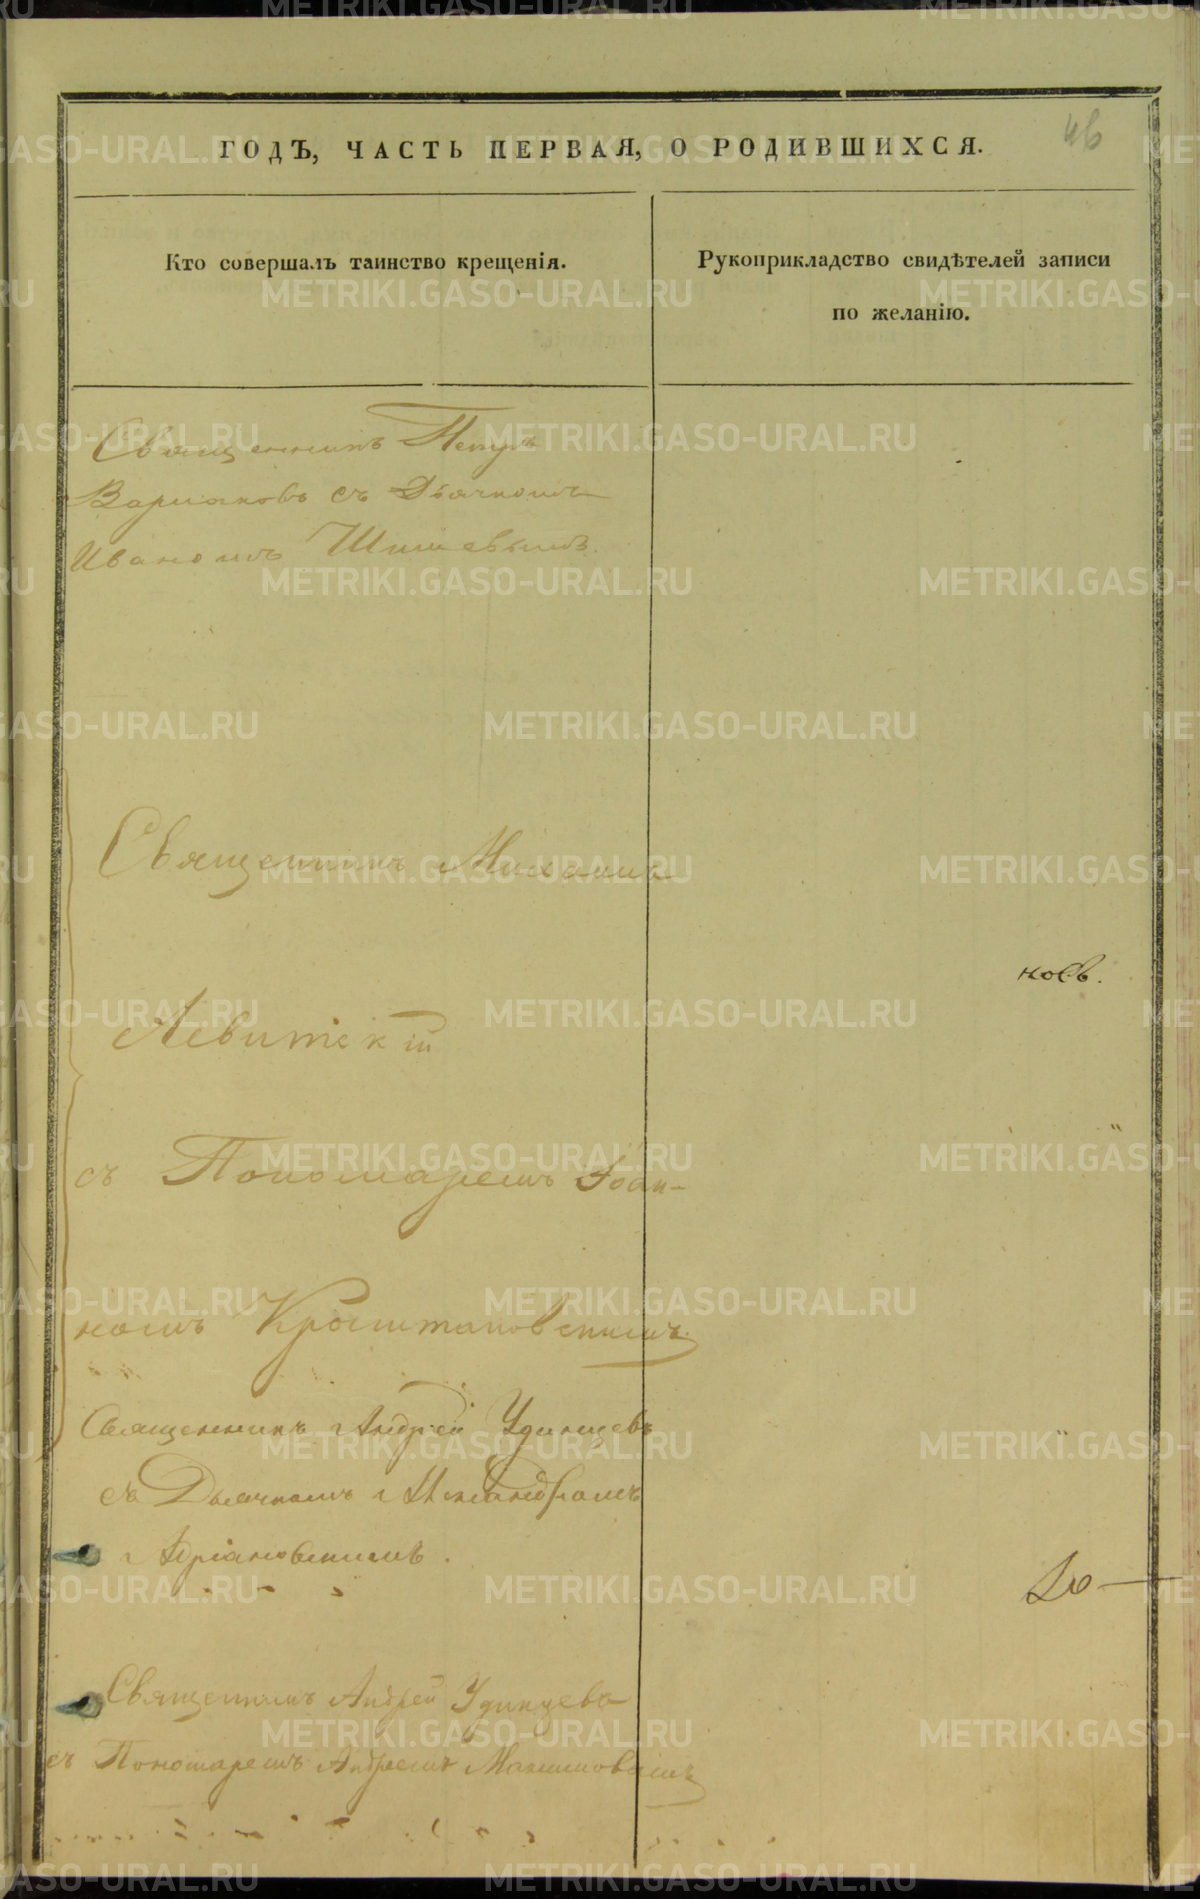 46
ГОДЪ, ЧАСТЬ ПЕРВАЯ, О РОДИВШИХСЯ.
Кто совершалъ таинство крещенія.
Рукоприкладство свидѣтелей записи
по желанію.
Священникъ Петръ
съ Дьячкомъ
Иваномъ Шишевымъ.
Священникъ Михаилъ
Левитскій
съ Пономаремъ Іоан-
номъ
Священникъ Андрей Удинцевъ
съ Дьячкомъ Александромъ
Адріановскимъ.
Священникъ Андрей Удинцевъ
съ Пономаремъ Андреемъ
METRIKI.GASO-URAL.RU